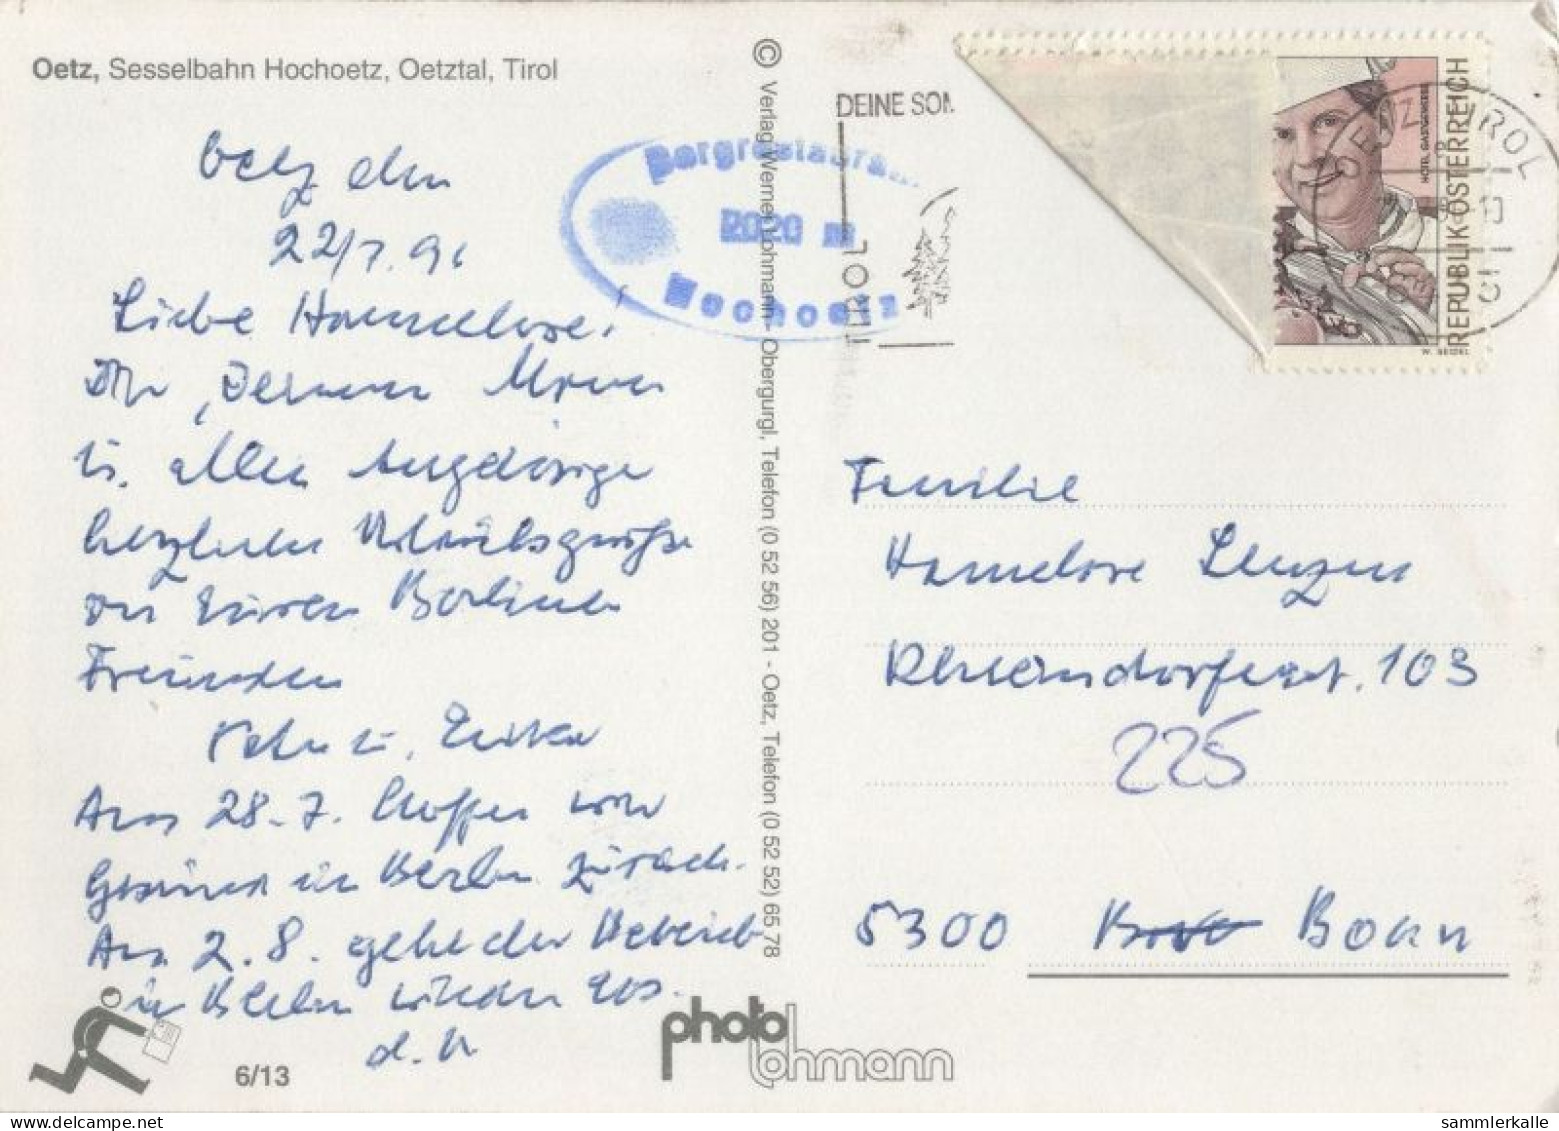 Oetz, Sesselbahn Hochoetz, Oetztal, Tirol
Oetz den
22/7.91
Liebe Hannelore!
Dir,
u. allen Angehörige
herzliche Urlaubsgrüße
von Euren Berliner
Freunden
u. Erika
Am 28.7. hoffen wir
Gesund in Berlin zurück.
Am 2.8. geht der Betrieb
in Berlin wieder los.
d. U
6/13
© Verlag Werner Lohmann - Obergurgl, Telefon (0 52 56) 201 - Oetz, Telefon (0 52 52) 65 78
photo
lohmann
Bergrestaura
2020 m
Hochoetz
DEINE SOM
TIROL
OETZ TIROL
REPUBLIK ÖSTERREICH
HOTEL GASTGEWERBE
W. SEIDEL
Familie
Hannelore Lenzen
Rheindorferstr. 103
225
5300 Bonn
sammlerkalle